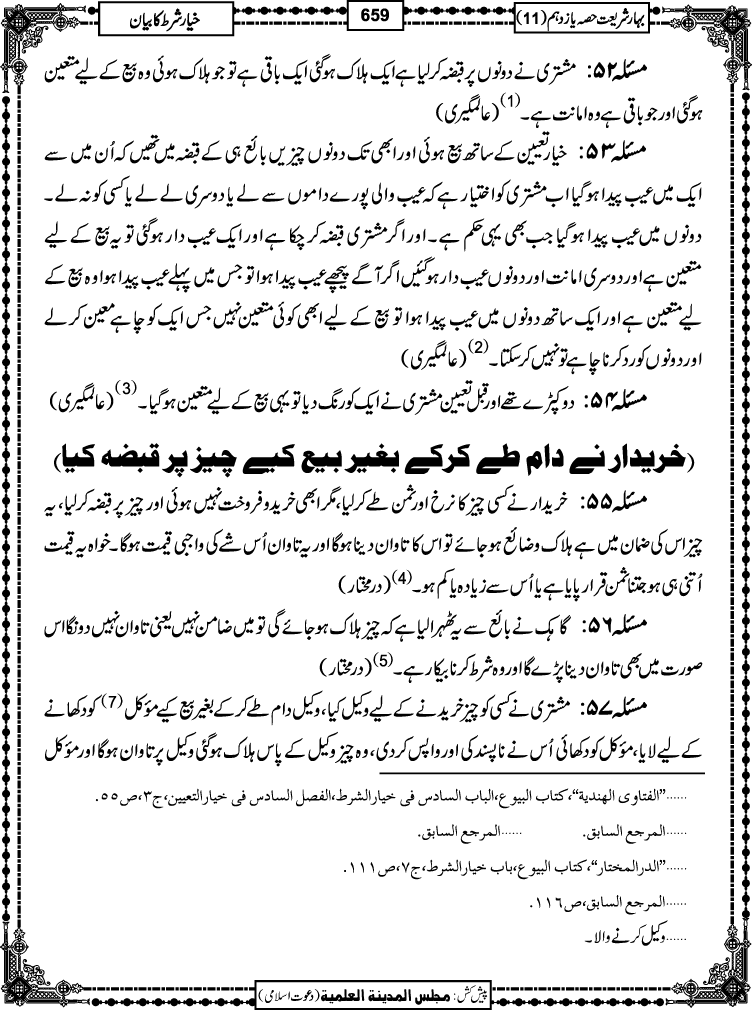 بہارِ شریعت حصہ یازدہم (11)
659
خیار شرط کا بیان
مسئلہ ۵۲: مشتری نے دونوں پر قبضہ کرلیا ہے ایک ہلاک ہوگئی ایک باقی ہے تو جو ہلاک ہوئی وہ بیع کے لیے متعین
ہوگئی اور جو باقی ہے وہ امانت ہے۔(1) (عالمگیری)
مسئلہ ۵۳: خیار تعیین کے ساتھ بیع ہوئی اور ابھی تک دونوں چیزیں بائع ہی کے قبضہ میں تھیں کہ اُن میں سے
ایک میں عیب پیدا ہوگیا اب مشتری کو اختیار ہے کہ عیب والی پورے داموں سے لے یا دوسری لے لے یا کسی کو نہ لے۔
دونوں میں عیب پیدا ہوگیا جب بھی یہی حکم ہے۔ اور اگر مشتری قبضہ کرچکا ہے اور ایک عیب دار ہوگئی تو یہ بیع کے لیے
متعین ہے اور دوسری امانت اور دونوں عیب دار ہوگئیں اگر آگے پیچھے عیب پیدا ہوا تو جس میں پہلے عیب پیدا ہوا وہ بیع کے
لیے متعین ہے اور ایک ساتھ دونوں میں عیب پیدا ہوا تو بیع کے لیے ابھی کوئی متعین نہیں جس ایک کو چاہے معین کرلے
اور دونوں کو رد کرنا چاہے تو نہیں کرسکتا۔(2) (عالمگیری)
مسئلہ ۵۴: دو کپڑے تھے اور قبل تعیین مشتری نے ایک کو رنگ دیا تو یہی بیع کے لیے متعین ہوگیا۔(3) (عالمگیری)
(خریدار نے دام طے کرکے بغیر بیع کیے چیز پر قبضہ کیا)
مسئلہ ۵۵: خریدار نے کسی چیز کا نرخ اور ثمن طے کرلیا، مگر ابھی خرید و فروخت نہیں ہوئی اور چیز پر قبضہ کرلیا، یہ
چیز اس کی ضمان میں ہے ہلاک و ضائع ہوجائے تو اس کا تاوان دینا ہوگا اور یہ تاوان اُس شے کی واجبی قیمت ہوگا۔ خواہ یہ قیمت
اُتنی ہی ہو جتنا ثمن قرار پایا ہے یا اُس سے زیادہ یا کم ہو۔(4) (درمختار)
مسئلہ ۵۶: گاہک نے بائع سے یہ ٹھہرالیا ہے کہ چیز ہلاک ہوجائے گی تو میں ضامن نہیں یعنی تاوان نہیں دونگا اس
صورت میں بھی تاوان دینا پڑے گا اور وہ شرط کرنا بیکار ہے۔(5) (درمختار)
مسئلہ ۵۷: مشتری نے کسی کو چیز خریدنے کے لیے وکیل کیا، وکیل دام طے کرکے بغیر بیع کیے مؤکل(7) کو دکھانے
کے لیے لایا، مؤکل کو دکھائی اُس نے ناپسند کی اور واپس کردی، وہ چیز وکیل کے پاس ہلاک ہوگئی وکیل پر تاوان ہوگا اور مؤکل
......"الفتاوی الهندية"، کتاب البيوع، الباب السادس فی خيار الشرط، الفصل السادس فی خيار التعيين، ج۳، ص۵۵.
......المرجع السابق. ......المرجع السابق.
......"الدرالمختار"، کتاب البيوع، باب خيار الشرط، ج۷، ص۱۱۱.
......المرجع السابق، ص۱۱۶.
......وکیل کرنے والا۔
پیش کش: مجلس المدينة العلمية (دعوت اسلامی)